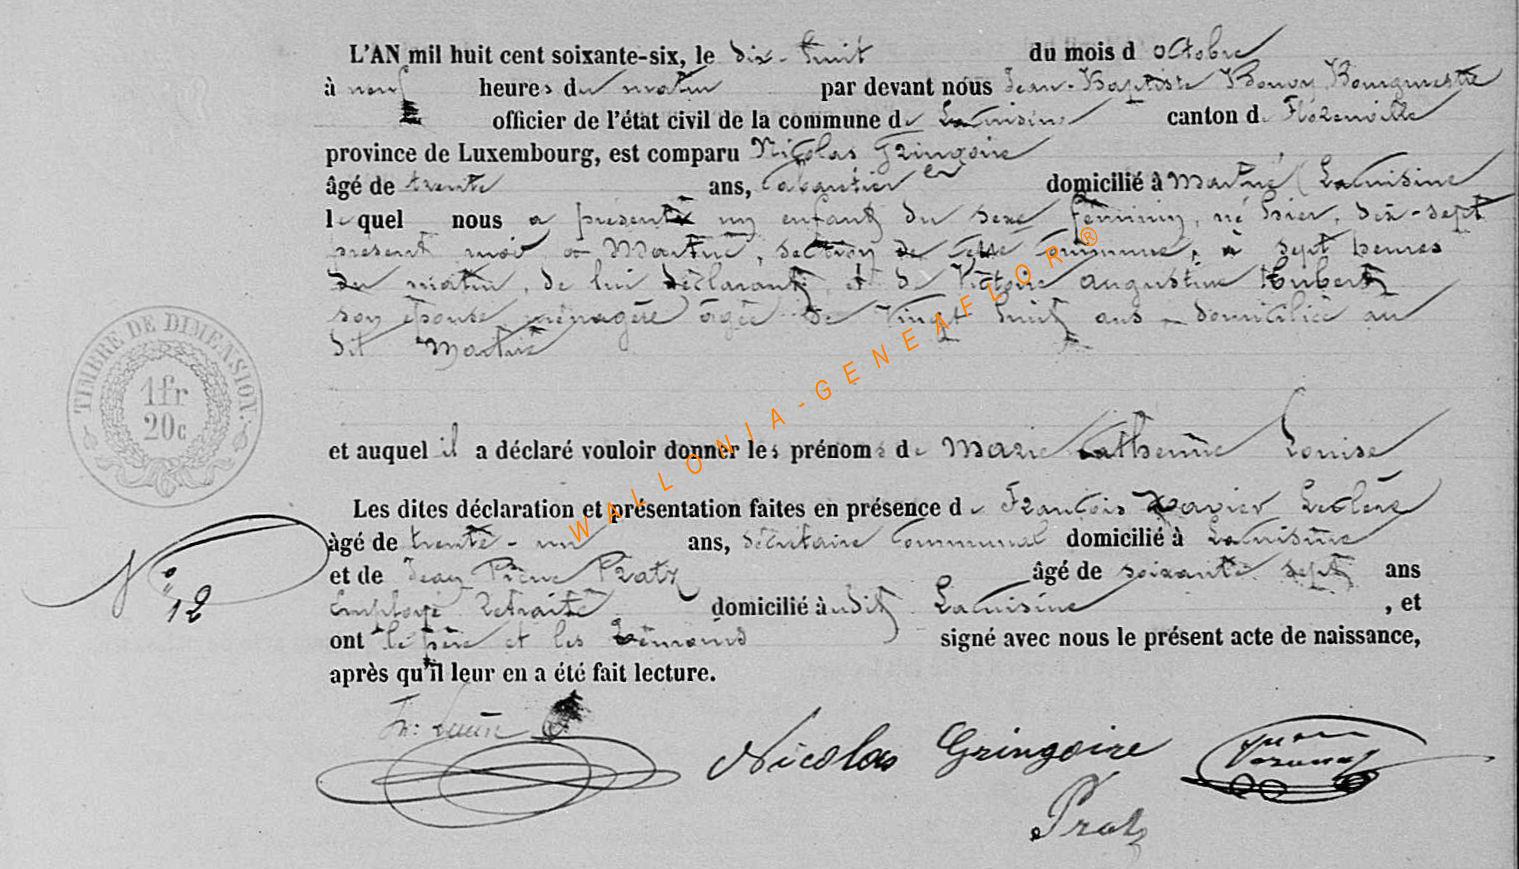 L'AN mil huit cent soixante-six, le dix-huit du mois d octobre
à neuf heures du matin par devant nous Jean-Baptiste Bourgmestre
officier de l'état civil de la commune de Lacuisine canton de Florenville
province de Luxembourg, est comparu Nicolas Gringoire
âgé de trente ans, Cabaretier domicilié à Martué (Lacuisine
lequel nous a présenté un enfant du sexe féminin, né hier, dix-sept
présent mois à Martué, section de cette commune, à sept heures
du matin, de lui déclarant, et de Victoire Augustine Hubert
son épouse ménagère âgée de vingt huit ans domiciliée au
dit Martué
TIMBRE DE DIMENSION.
1fr
20c
et auquel il a déclaré vouloir donner les prénoms de Marie Catherine Louise
Les dites déclaration et présentation faites en présence de François Xavier Leclère
âgé de trente-un ans, secrétaire Communal domicilié à Lacuisine
et de Jean Pierre Pratz âgé de soixante sept ans
Employé retraité domicilié audit Lacuisine, et
No 12
ont le père et les témoins signé avec nous le présent acte de naissance,
après qu'il leur en a été fait lecture.
Nicolas Gringoire
Pratz
WALLONIA-GENEAFLOR®